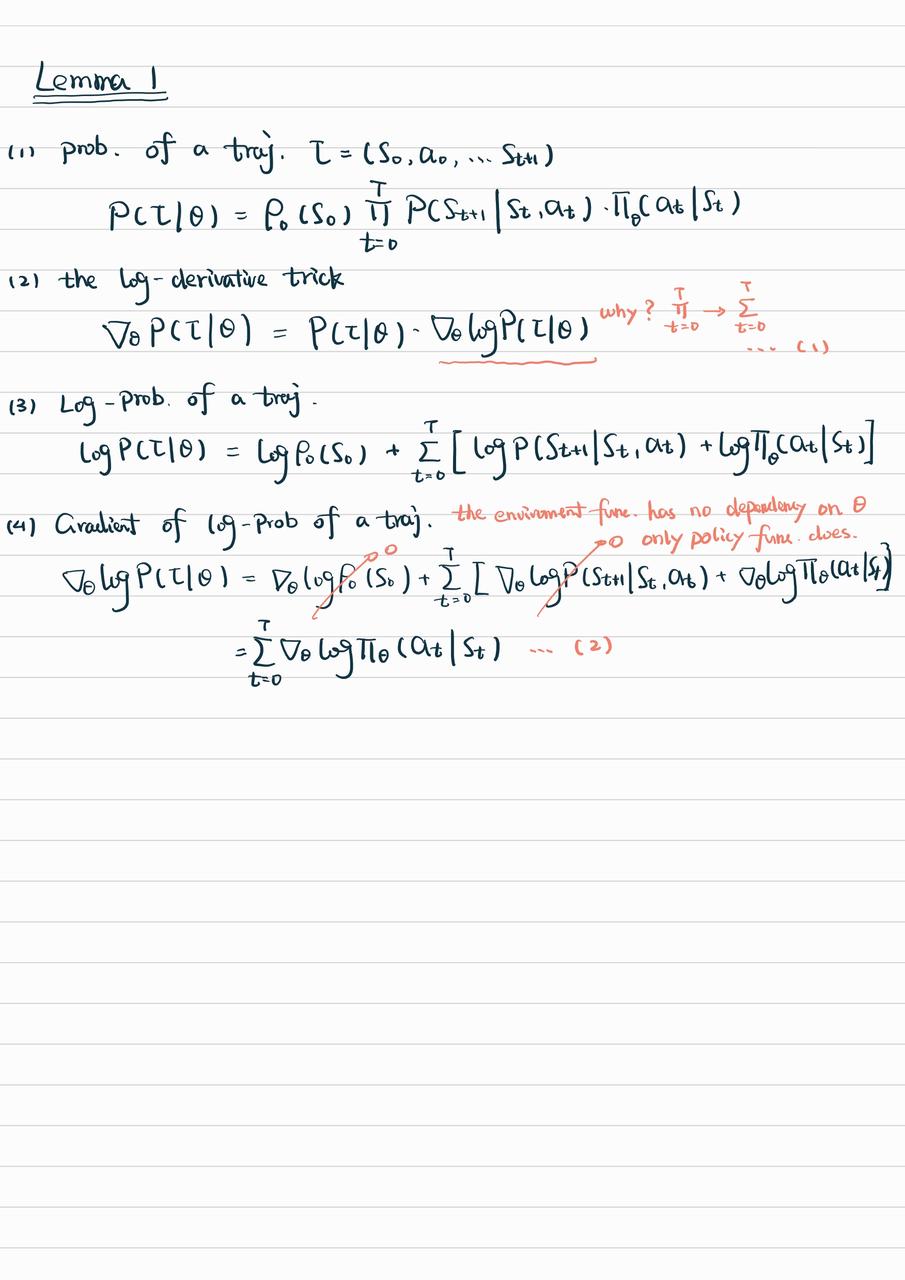 Lemma 1
(1) prob. of a traj. τ = (S₀, a₀, ... Sₜ₊₁)
P(τ|θ) = ρ₀(S₀) ∏ₜ₌₀ᵀ P(Sₜ₊₁|Sₜ, aₜ) · π_θ(aₜ|Sₜ)
(2) the log-derivative trick
∇_θ P(τ|θ) = P(τ|θ) · ∇_θ log P(τ|θ) why? ∏ₜ₌₀ᵀ → Σₜ₌₀ᵀ
... (1)
(3) Log-prob. of a traj.
log P(τ|θ) = log ρ₀(S₀) + Σₜ₌₀ᵀ [ log P(Sₜ₊₁|Sₜ, aₜ) + log π_θ(aₜ|Sₜ)]
(4) Gradient of log-prob of a traj. the enviroment func. has no dependency on θ
only policy func. does.
∇_θ log P(τ|θ) = ∇_θ log ρ₀(S₀) → 0 + Σₜ₌₀ᵀ [ ∇_θ log P(Sₜ₊₁|Sₜ, aₜ) → 0 + ∇_θ log π_θ(aₜ|Sₜ)]
= Σₜ₌₀ᵀ ∇_θ log π_θ(aₜ|Sₜ) ... (2)